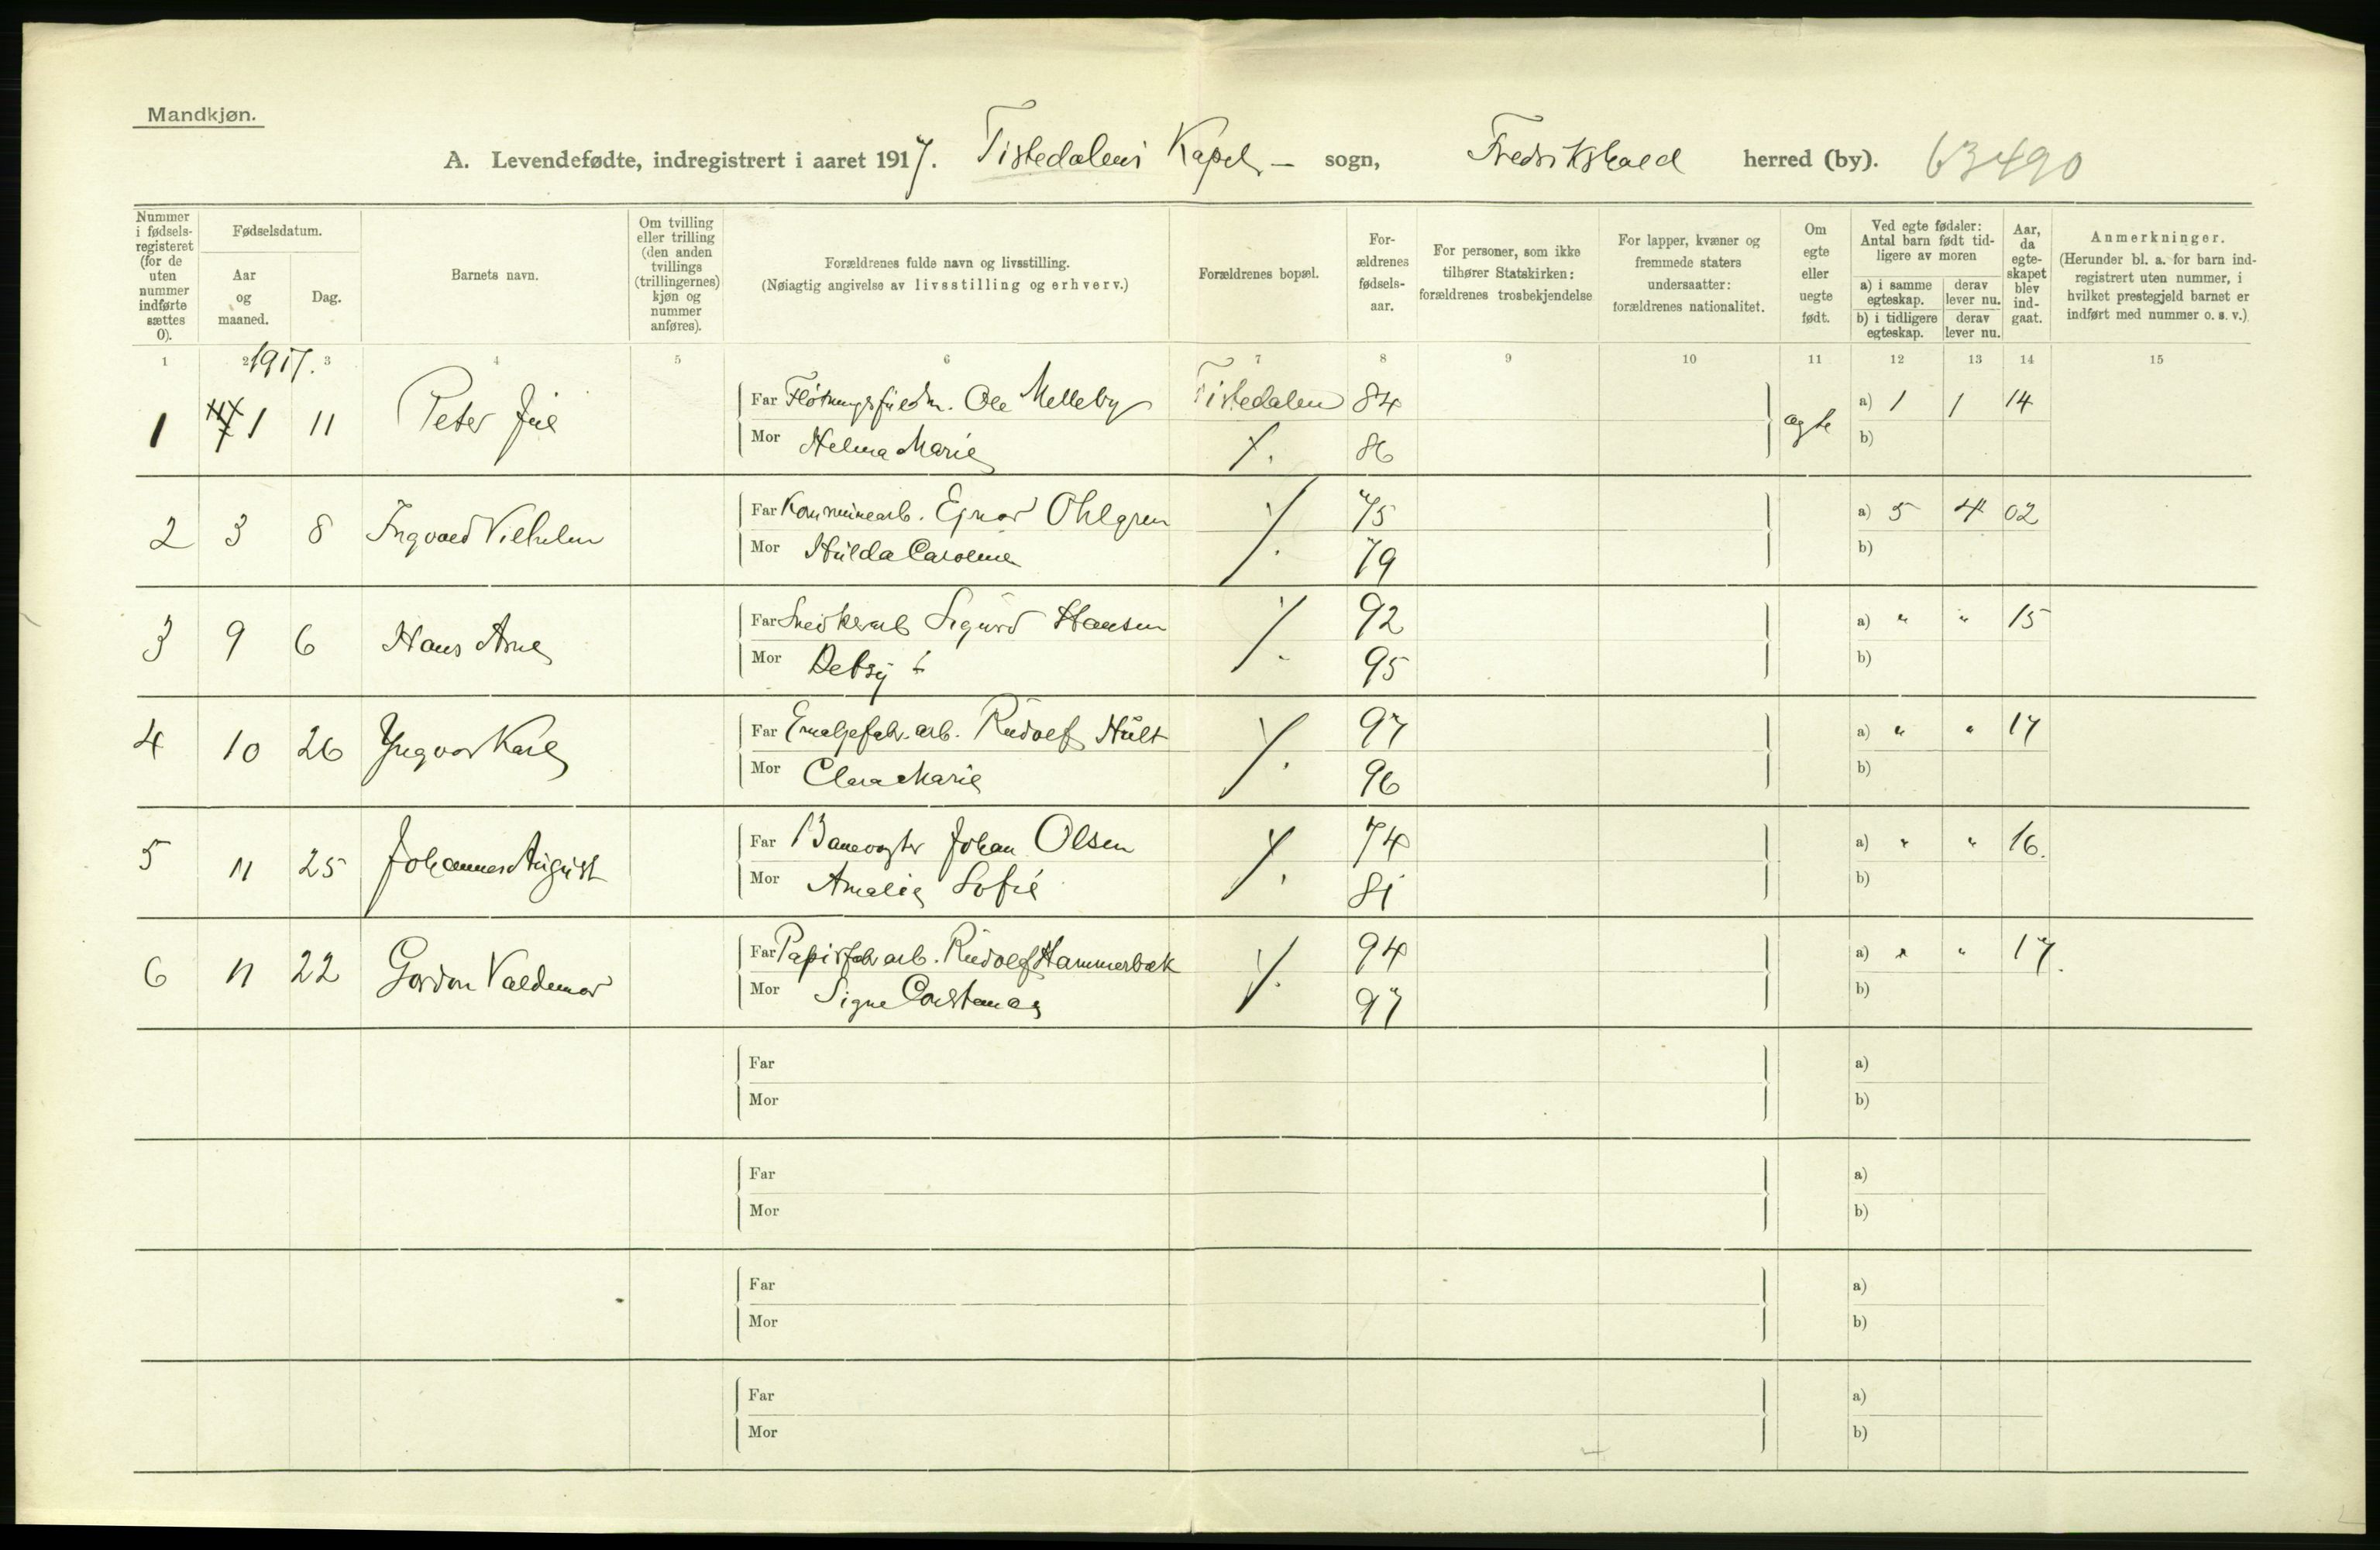 Mandkjøn.
A. Levendefødte, indregistrert i aaret 1917. Tistedalens Kapel – sogn, Fredrikshald herred (by). 63490
Nummer i fødsels-registeret (for de uten nummer indførte sættes 0).
Fødselsdatum.
Aar og maaned.
Dag.
Barnets navn.
Om tvilling eller trilling (den anden tvillings (trillingernes) kjøn og nummer anføres).
Forældrenes fulde navn og livsstilling.
(Nøiagtig angivelse av livsstilling og erhverv.)
Forældrenes bopæl.
For-ældrenes fødsels-aar.
For personer, som ikke tilhører Statskirken: forældrenes trosbekjendelse
For lapper, kvæner og fremmede staters undersaatter: forældrenes nationalitet.
Om egte eller uegte født.
Ved egte fødsler: Antal barn født tid-ligere av moren
a) i samme egteskap.
derav lever nu.
b) i tidligere egteskap.
derav lever nu.
Aar, da egte-skapet blev ind-gaat.
Anmerkninger.
(Herunder bl. a. for barn ind-registrert uten nummer, i hvilket prestegjeld barnet er indført med nummer o. s. v.)
1 2 3 4 5 6 7 8 9 10 11 12 13 14 15
1917.
1 1 11 Peter Juel Far Ole Melleby Tistedalen 84 ægte a) 1 1 14
Mor Helma Marie 86 b)
2 3 8 Ingvald Vilhelm Far Kommunearb. Ejnar Ohlgren 75 a) 5 4 02
Mor Hulda Caroline 79 b)
3 9 6 Hans Arne Far Snedkerarb Sigurd Hansen 92 a) " " 15
Mor Betsy 95 b)
4 10 26 Yngvar Karl Far Emaljefabr. arb. Rudolf Hult 97 a) " " 17
Mor Clara Marie 96 b)
5 11 25 Johannes August Far Banevogter Johan Olsen 74 a) " " 16.
Mor Amalie Sofie 81 b)
6 11 22 Gordon Valdemar Far Papirfabr arb. Rudolf Hammerbæk 94 a) " " 17.
Mor Signe Constance 97 b)
Far a)
Mor b)
Far a)
Mor b)
Far a)
Mor b)
Far a)
Mor b)